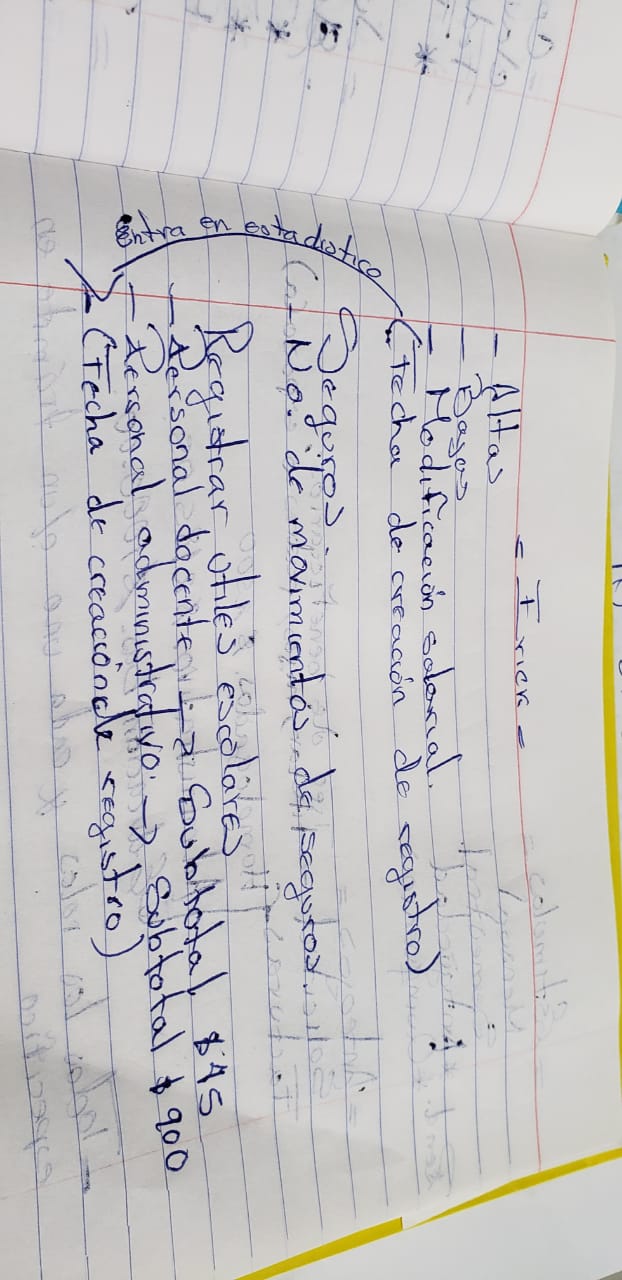 = Erick =
- Altas
- Bajas
- Modificación salarial.
(Fecha de creación de registro)
Entra en estadistico
Seguros.
- No. de movimientos de seguros.
Registrar utiles escolares
- Personal docente → Subtotal $45
- Personal administrativo. → Subtotal $900
(Fecha de creacción de registro)